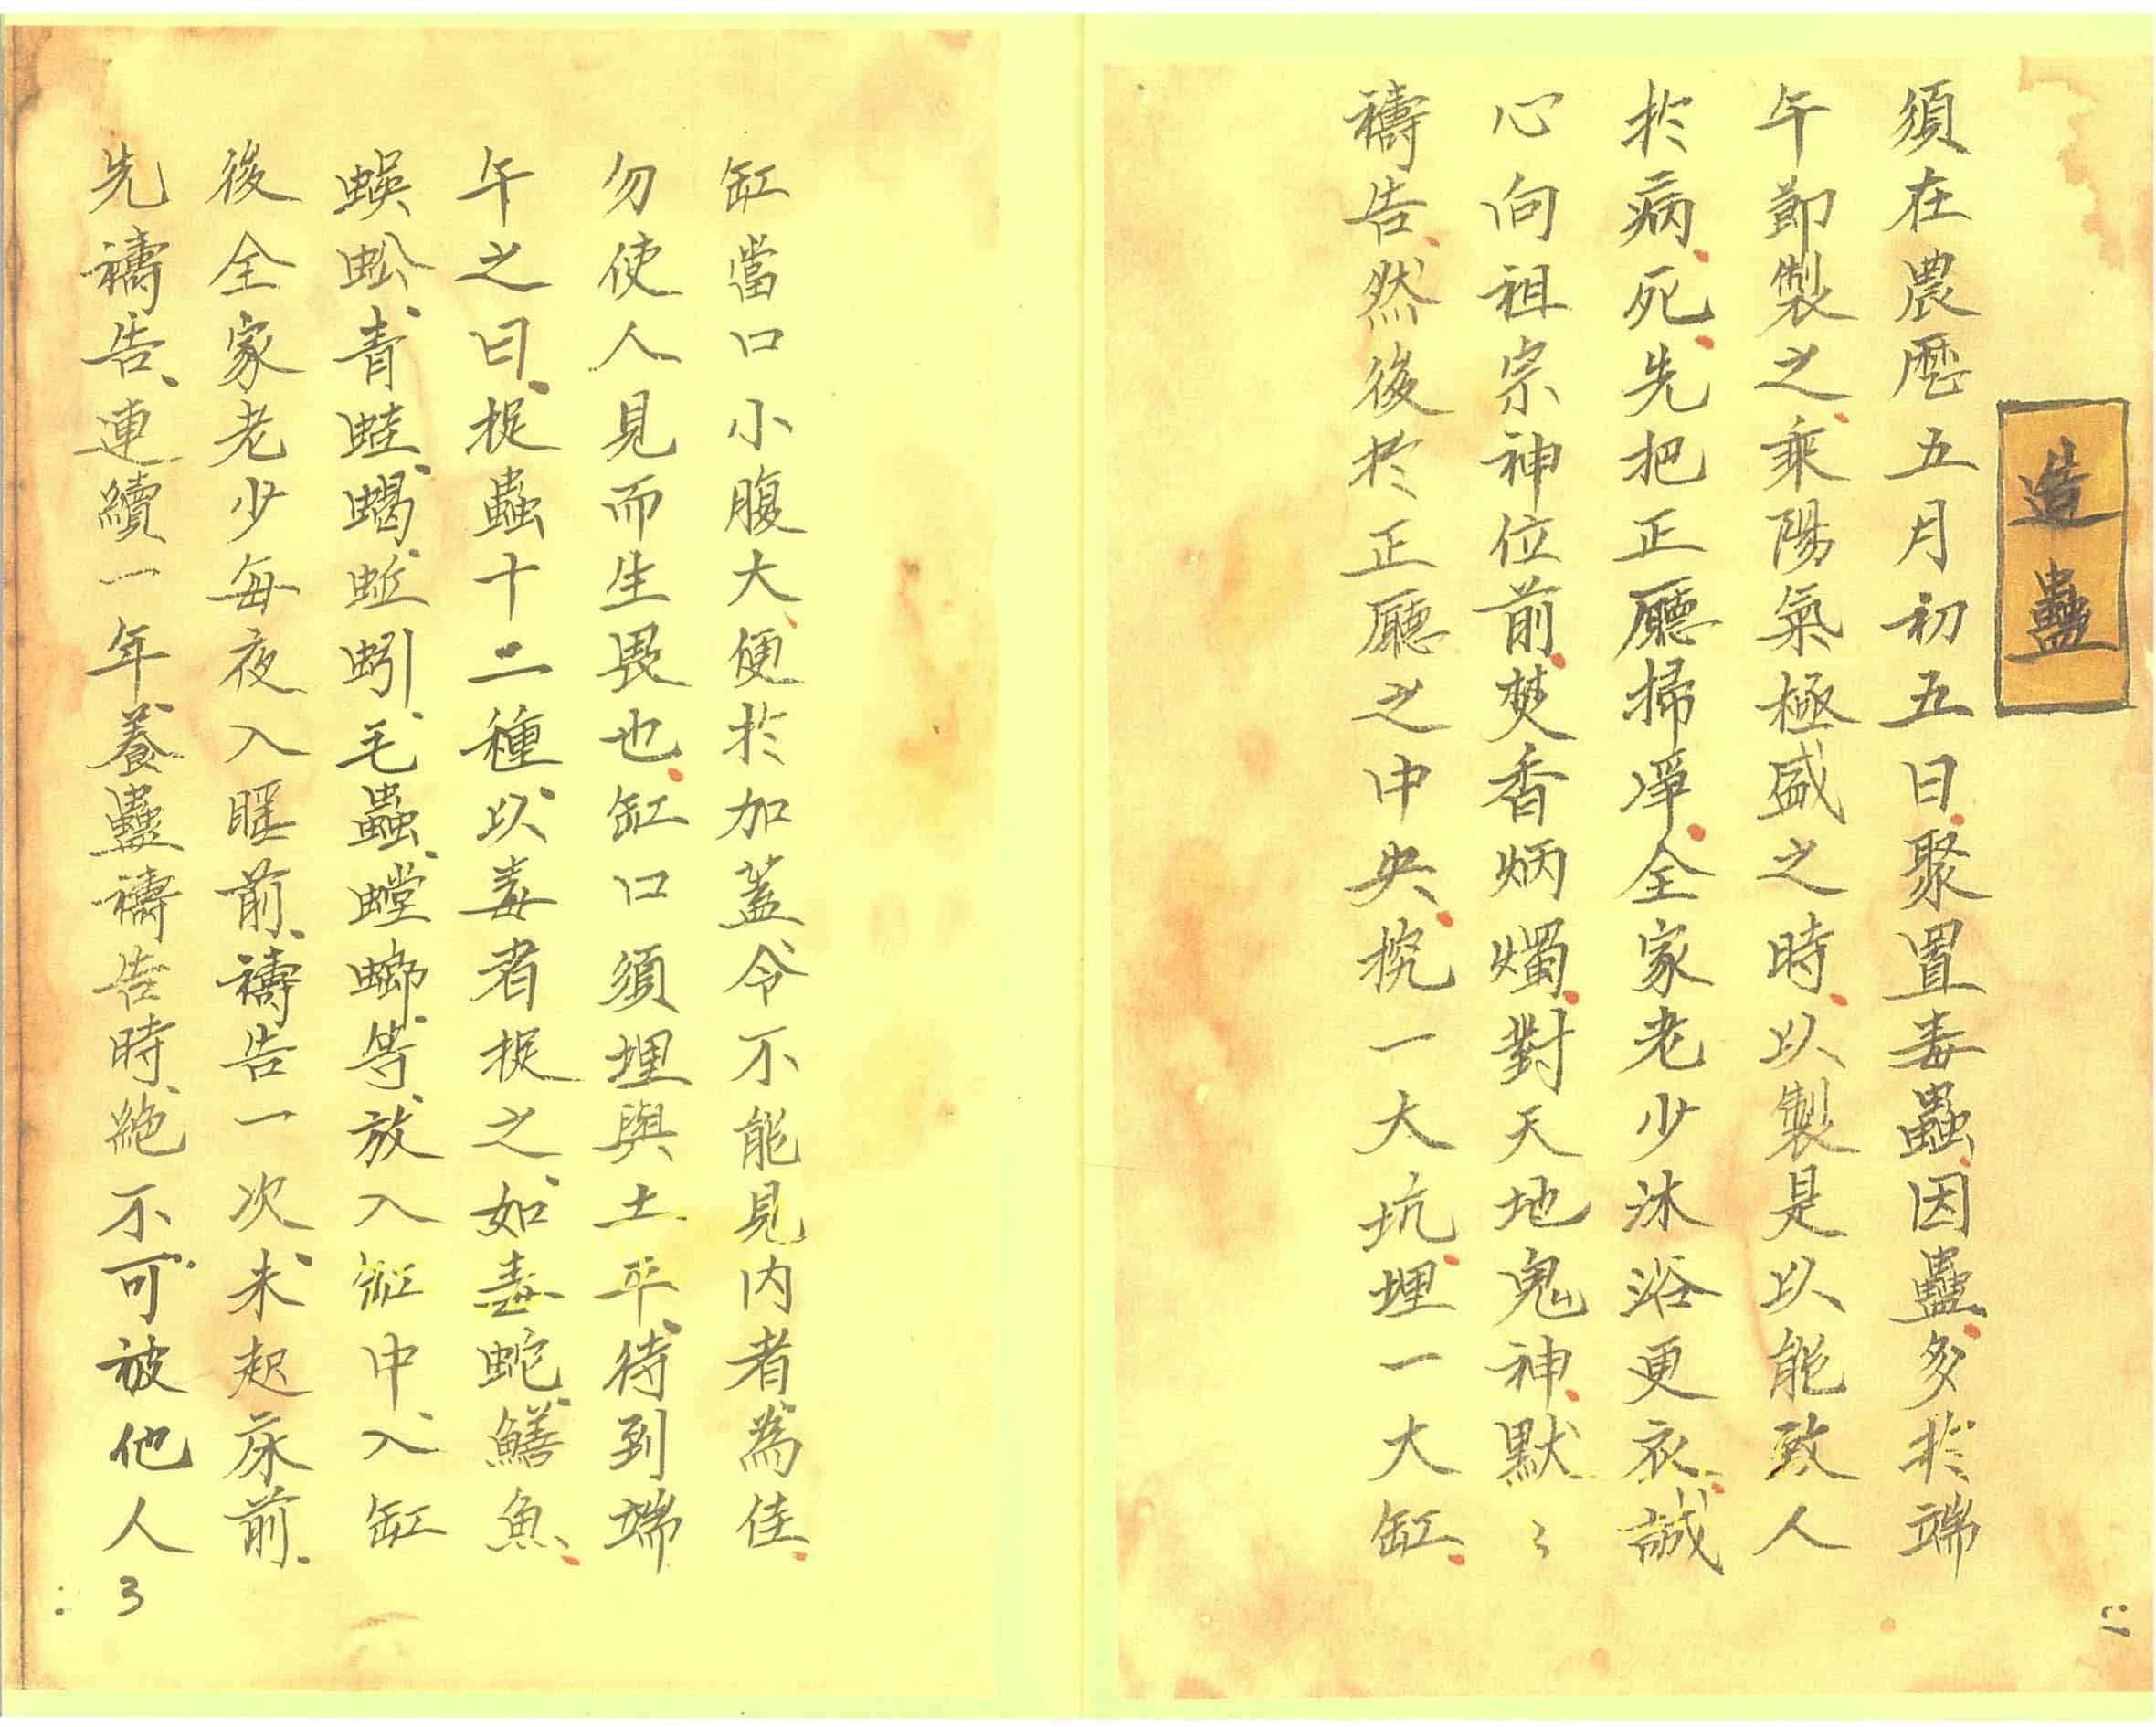 造蠱
須在農歷五月初五日、聚置毒蟲、因蠱、多於端
午節製之、乘陽氣極盛之時、以製是以能致人
於病、死、先把正廳掃凈、全家老少沐浴更衣、誠
心向祖宗神位前、焚香炳燭、對天地鬼神、默ミ
禱告、然後於正廳之中央、挖一大坑、埋一大缸、
缸當口小腹大、便於加蓋、令不能見內者、為佳、
勿使人見而生畏也、缸口須埋與土平、待到端
午之日、捉蟲十二種、以毒者捉之、如毒蛇、鱔魚、
蜈蚣、青蛙、蝎、蚯蚓、毛蟲、螳螂、等、放入缸中、入缸
後全家老少每夜入睡前、禱告一次、未起床前、
先禱告、連續一年、養蠱禱告時、絕不可、被他人
3